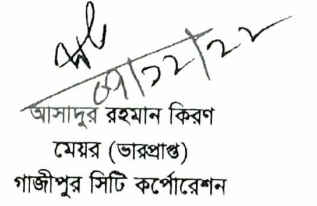 ০৭/১২/২২
আসাদুর রহমান কিরণ
মেয়র (ভারপ্রাপ্ত)
গাজীপুর সিটি কর্পোরেশন